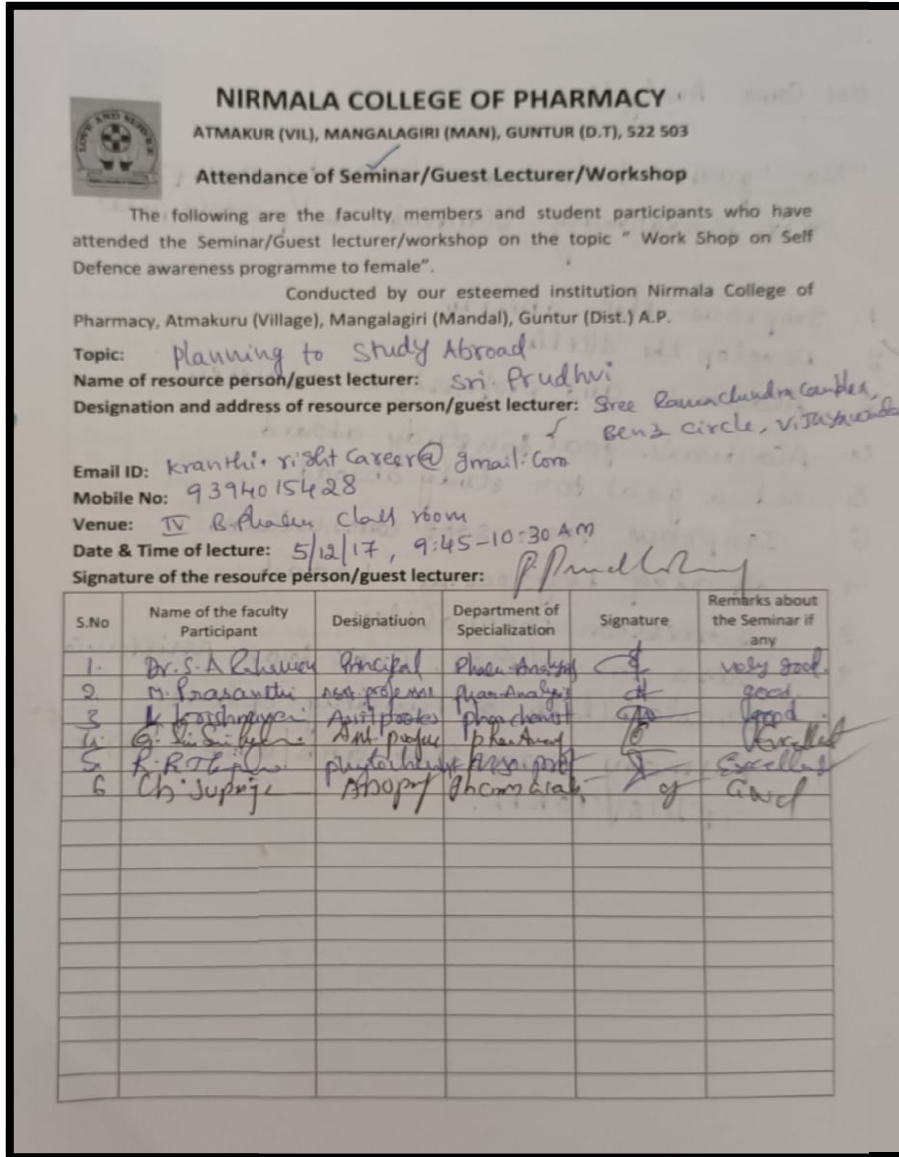 NIRMALA COLLEGE OF PHARMACY
LOVE AND SERVICE
ATMAKUR (VIL), MANGALAGIRI (MAN), GUNTUR (D.T), 522 503
Attendance of Seminar/Guest Lecturer/Workshop
The following are the faculty members and student participants who have
attended the Seminar/Guest lecturer/workshop on the topic “ Work Shop on Self
Defence awareness programme to female”.
Conducted by our esteemed institution Nirmala College of
Pharmacy, Atmakuru (Village), Mangalagiri (Mandal), Guntur (Dist.) A.P.
Topic: Planning to Study Abroad
Name of resource person/guest lecturer: Sri Prudhvi
Designation and address of resource person/guest lecturer: Sree
Benz circle,
Email ID: Kranthi.rightcareer@gmail.com
Mobile No: 9394015428
Venue: IV class room
Date & Time of lecture: 5/12/17, 9:45-10:30 AM
Signature of the resource person/guest lecturer:
S.No Name of the faculty Participant Designatiuon Department of Specialization Signature Remarks about the Seminar if any
1. Dr. S. A Principal very good
2 M. Prasanthi good
3 good
4. G.
5. Excellent
6 Ch.